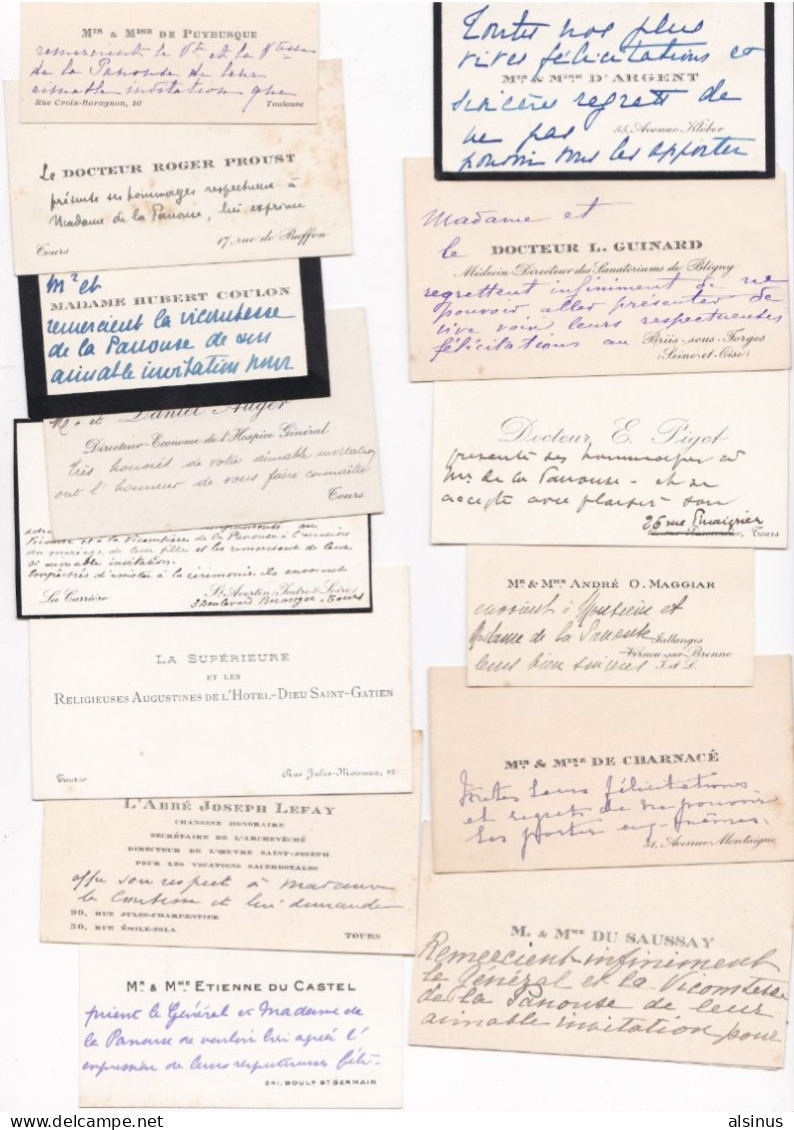 Mr & Mme de Puybusque
remercient le Vte et la Vtesse
de la Panouse de leur
aimable invitation que
Rue Croix-Baragnon, 10 Toulouse
Le Docteur Roger Proust
présente ses hommages respectueux à
Madame de la Panouse, lui exprime
17, rue de Buffon
Tours
Mr et
Madame Hubert Coulon
remercient la vicomtesse
de la Panouse de son
aimable invitation pour
M. et Daniel Auger
Directeur-Econome de l'Hospice Général
très honorés de votre aimable invitation
ont l'honneur de vous faire connaître
Tours
Vicomte et à la Vicomtesse de la Panouse à l'occasion
du mariage de leur fille et les remercient de leur
si aimable invitation.
Empêchés d'assister à la cérémonie ils envoient
La Carrière St Avertin (Indre-&-Loire)
3 Boulevard Béranger - Tours
La Supérieure
et les
Religieuses Augustines de l'Hotel-Dieu Saint-Gatien
Tours Rue Jules-Moinaux, 10
L'Abbé Joseph Lefay
Chanoine Honoraire
Secrétaire de l'Archevêché
Directeur de l'Œuvre Saint-Joseph
pour les Vocations Sacerdotales
offre son respect à Madame
la Comtesse et lui demande
99, rue Jules-Charpentier
50, rue Émile-Zola Tours
Mr & Mme Etienne du Castel
prient le Général et Madame de
la Panouse de vouloir bien agréer l'
expression de leurs respectueuses féli-
241, Boult St Germain
Toutes nos plus
vives félicitations et
Mr & Mme d'Argent
sincères regrets de
ne pas
55, Avenue Kléber
pouvoir vous les apporter
Madame et
le Docteur L. Guinard
Médecin-Directeur des Sanatoriums de Bligny
regrettent infiniment de ne
pouvoir aller présenter de
vive voix leurs respectueuses
félicitations au
Briis-sous-Forges
(Seine-et-Oise)
Docteur E. Pigot
présente ses hommages à
Me de la Panouse - et
accepte avec plaisir son
26 rue
Tours
Mr & Mme André O. Maggiar
envoient à Monsieur et
Madame de la Panouse
Jallanges
Vernou-sur-Brenne
leurs bien sincères I. & L.
Mr & Mme de Charnacé
Toutes leurs félicitations
et regrets de ne pouvoir
les porter eux-mêmes.
51, Avenue Montaigne
M. & Mme du Saussay
Remercient infiniment
le Général et la Vicomtesse
de la Panouse de leur
aimable invitation pour
alsinus
delcampe.net